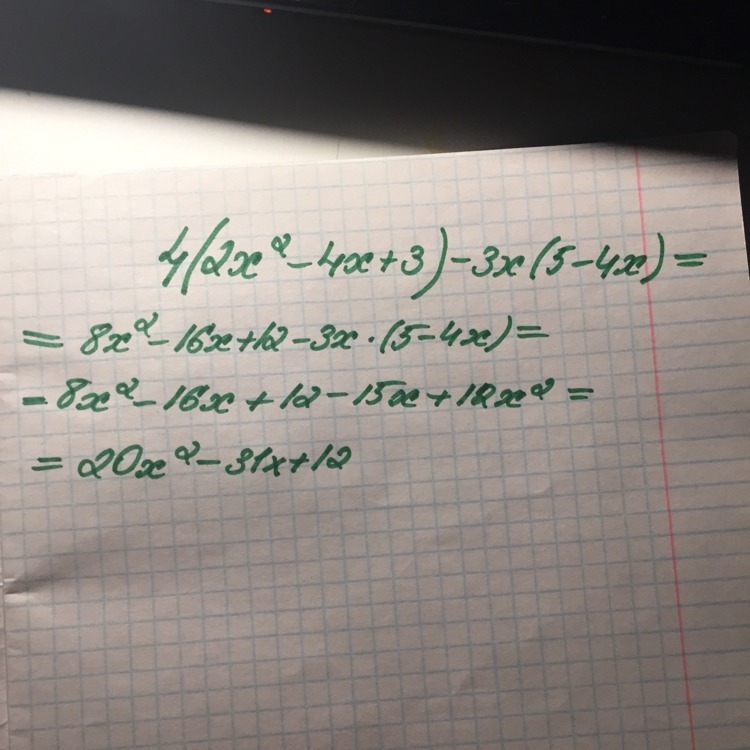 4(2x² - 4x + 3) - 3x(5 - 4x) =
= 8x² - 16x + 12 - 3x · (5 - 4x) =
- 8x² - 16x + 12 - 15x + 12x² =
= 20x² - 31x + 12